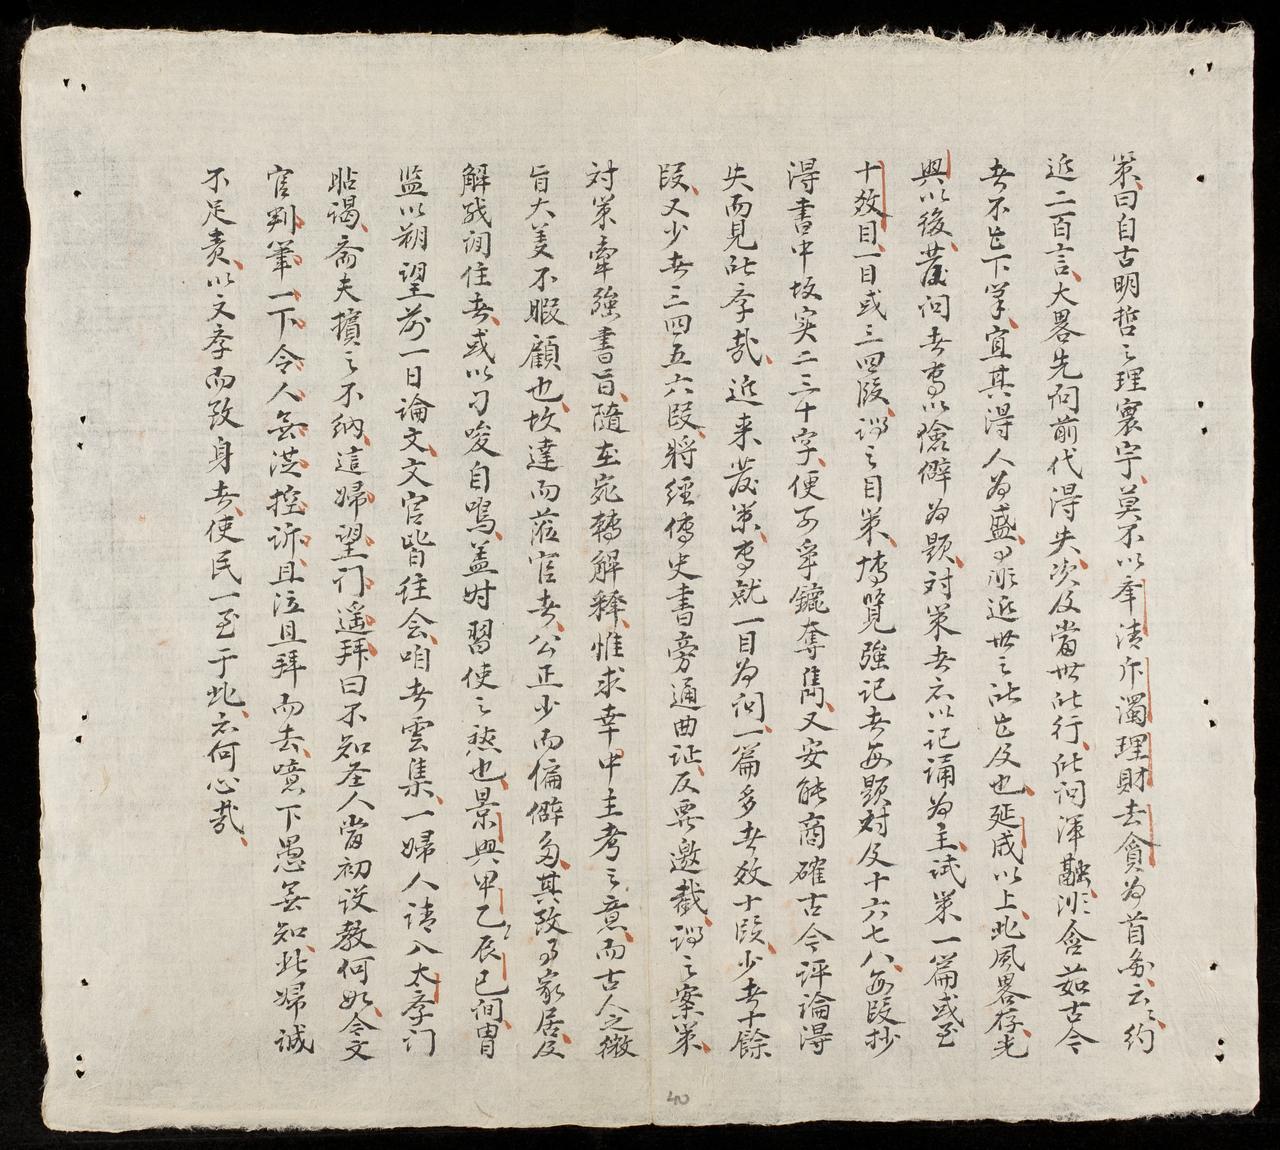 策曰自古明哲之理寰宇莫不以奉清斥濁理財去貪為首務云云約
近二百言大畧先问前代得失次及當世所行所问渾融非含茹古今
者不㠯下筆宜其得人為盛而非近世之所㠯及也延成以上此風畧存光
興以後發问者専以滄僻為題対策者亦以记诵為主試策一篇或至
十數目一目或三四段謂之目策博覽強记者每題対及十六七八每段抄
得書中故实二三十字便可爭鑣奪雋又安能商確古今评论得
失而見所李哉近来發策専就一目為问一篇多者數十段少者十餘
段又少者三四五六段将經傳史書旁通曲证反要邀截謂之案策
対策牽強書旨隨在宛轉解釋惟求幸中主考之意而古人之微
旨大美不暇顧也故達而蒞官者公正少而偏僻多其致事家居反
解残词住者或以刁唆自鳴盖时習使之然也景興甲乙辰巳间胄
监以朔望前一日论文文官皆往会咱者雲集一婦人请入太李门
貼谒斋夫擯之不納這婦望门遥拜曰不知圣人當初设教何如令文
官判筆一下令人無洪控诉且泣且拜而去噫下愚無知此婦诚
不足責以文李而致身者使民一至于此亦何心哉
40